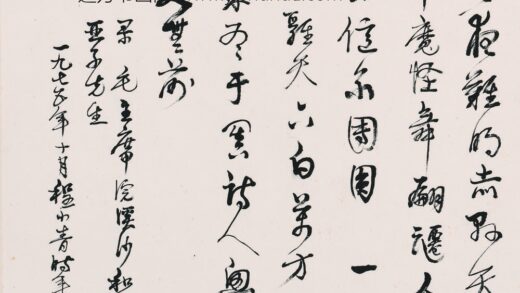 夜難明赤縣天
年魔怪舞翩躚人
億不團圓一
雞天下白萬方
奏有于闐詩人興
無前
录毛主席浣溪沙和
亚子先生
一九七五年十月程小青时年